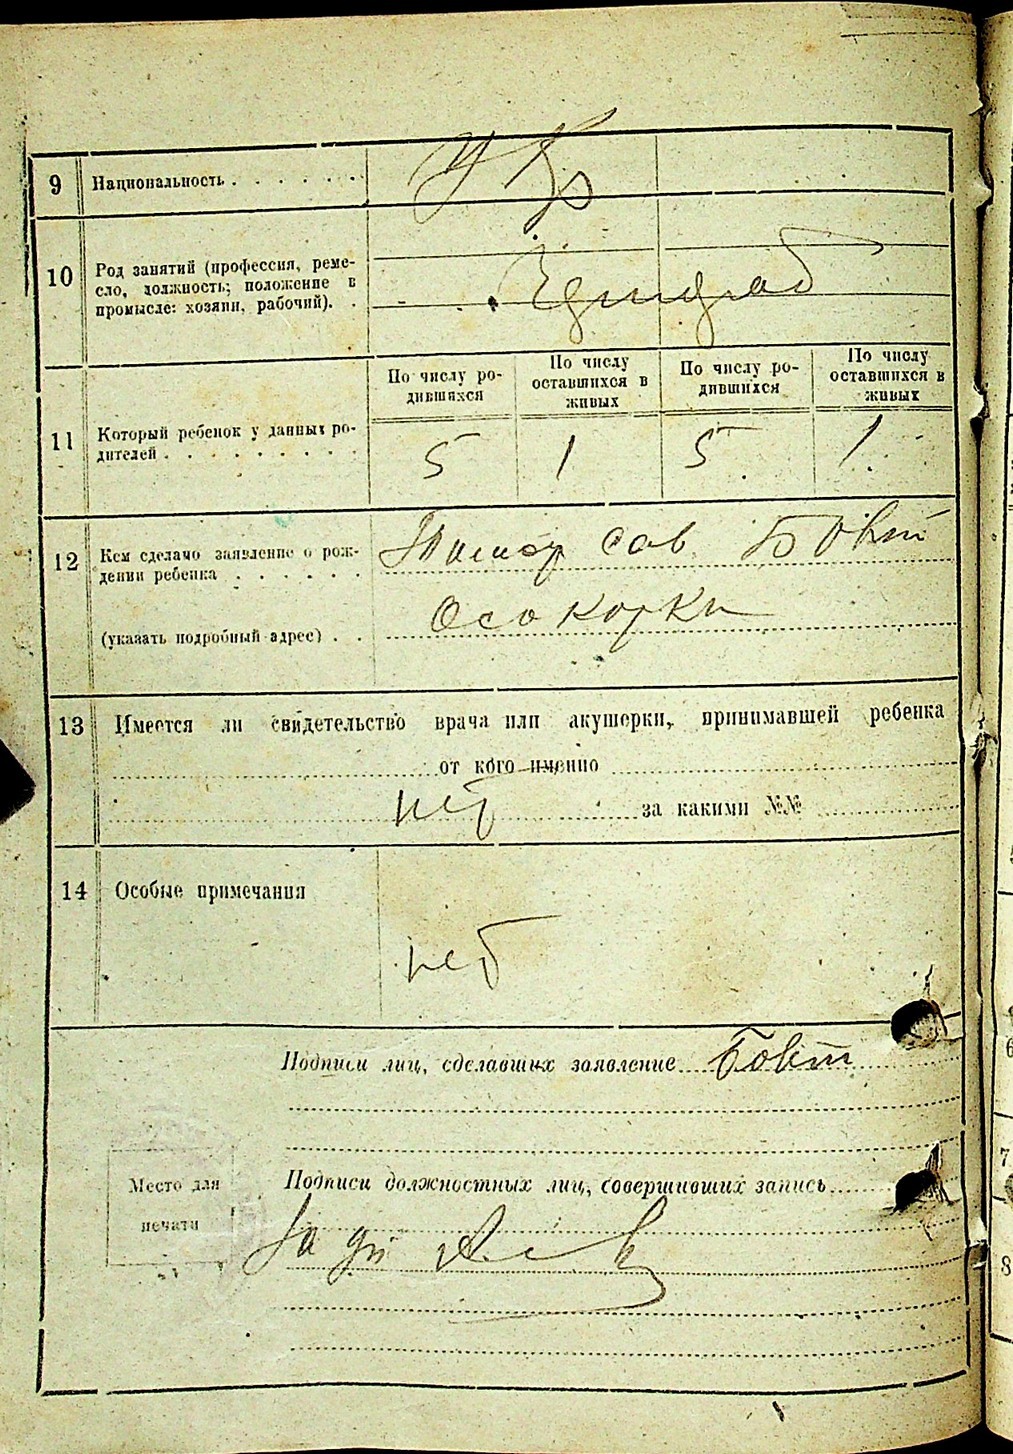 9 Национальность . . . . . . Укр
10 Род занятий (профессия, реме-
сло, должность; положение в
промысле: хозяин, рабочий). .
11 Который ребенок у данных ро-
дителей . . . . . . . . .
По числу ро-
дившихся
По числу
оставшихся в
живых
По числу ро-
дившихся
По числу
оставшихся в
живых
5 1 5 1
12 Кем сделано заявление о рож-
дении ребенка . . . . . .
(указать подробный адрес) . .
Бовт
Осокорки
13 Имеется ли свидетельство врача или акушерки, принимавшей ребенка
от кого именно
нет за какими №№
14 Особые примечания
нет
Подписи лиц, сделавших заявление Бовт
Подписи должностных лиц, совершивших запись
Место для
печати
5
6
7
8